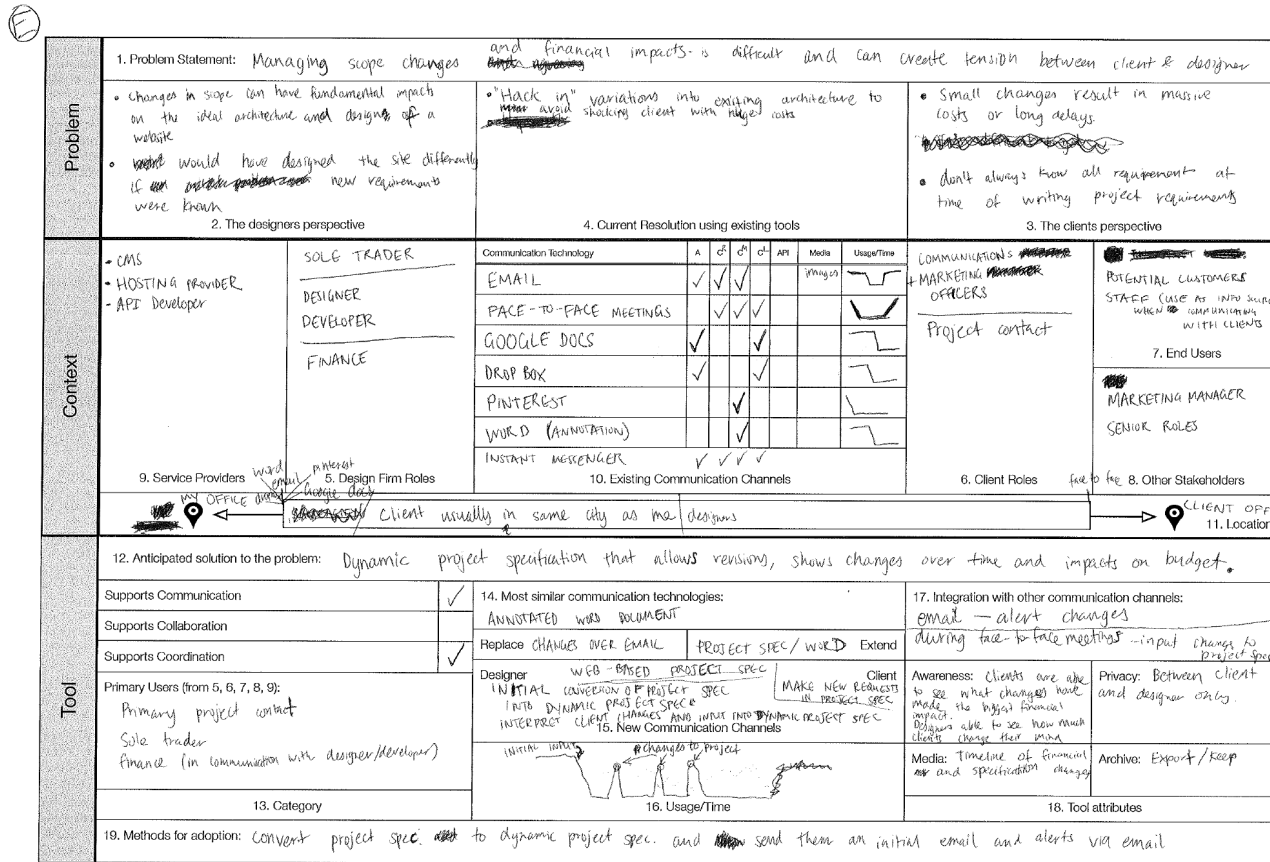 E
Problem
1. Problem Statement: Managing scope changes and financial impacts is difficult and can create tension between client & designer
• Changes in scope can have fundamental impacts
on the ideal architecture and designs of a
website
• would have designed the site differently
if new requirements
were known
2. The designers perspective
• "Hack in" variations into existing architecture to
avoid shocking client with huge costs
4. Current Resolution using existing tools
• Small changes result in massive
costs or long delays.
• don't always know all requirement at
time of writing project requirements
3. The clients perspective
Context
- CMS
- HOSTING PROVIDER
- API Developer
9. Service Providers
SOLE TRADER
DESIGNER
DEVELOPER
FINANCE
5. Design Firm Roles
Communication Technology A C C C API Media Usage/Time
EMAIL ✓ ✓ ✓ images
FACE-TO-FACE MEETINGS ✓ ✓ ✓
GOOGLE DOCS ✓ ✓
DROP BOX ✓ ✓
PINTEREST ✓
WORD (ANNOTATION) ✓
INSTANT MESSENGER ✓ ✓ ✓ ✓
10. Existing Communication Channels
COMMUNICATIONS
+ MARKETING
OFFICERS
Project contact
6. Client Roles
POTENTIAL CUSTOMERS
STAFF (USE AS INFO
WHEN COMMUNICATING
WITH CLIENTS
7. End Users
MARKETING MANAGER
SENIOR ROLES
8. Other Stakeholders
word
email
pinterest
Google docs
MY OFFICE
Client usually in same city as me designers
face to face
CLIENT OFF
11. Location
Tool
12. Anticipated solution to the problem: Dynamic project specification that allows revisions, shows changes over time and impacts on budget.
Supports Communication ✓
Supports Collaboration
Supports Coordination ✓
Primary Users (from 5, 6, 7, 8, 9):
Primary project contact
Sole trader
finance (in communication with designer/developer)
13. Category
14. Most similar communication technologies:
ANNOTATED WORD DOCUMENT
Replace CHANGES OVER EMAIL
PROJECT SPEC/WORD Extend
Designer WEB-BASED PROJECT SPEC Client
INITIAL CONVERSION OF PROJECT SPEC
INTO DYNAMIC PROJECT SPEC
INTERPRET CLIENT CHANGES AND INPUT INTO DYNAMIC PROJECT SPEC
MAKE NEW REQUESTS
IN PROJECT SPEC
15. New Communication Channels
INITIAL INPUT
changes to project
16. Usage/Time
17. Integration with other communication channels:
email — alert changes
during face-to face meetings - input change to
project spec
Awareness: Clients are able
to see what changes have
made the biggest financial
impact.
Designers able to see how much
clients change their mind
Privacy: Between client
and designer only.
Media: Timeline of financial
and specification changes
Archive: Export / keep
18. Tool attributes
19. Methods for adoption: Convert project spec. to dynamic project spec. and send them an initial email and alerts via email